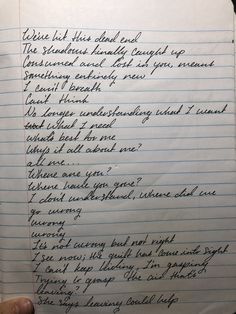 We've hit this dead end
The shadows finally caught up
Consumed and lost in you, means
something entirely new
I can't breath
Can't think
No longer understanding what I want
but What I need
what's best for me
Why's it all about me?
all me...
Where are you?
Where have you gone?
I don't understand, where did we
go wrong
wrong
wrong
It's not wrong but not right
I see now; the guilt has come into sight
I can't keep hiding, I'm gasping
Trying to grasp the air that's
leaving?
She says leaving could help